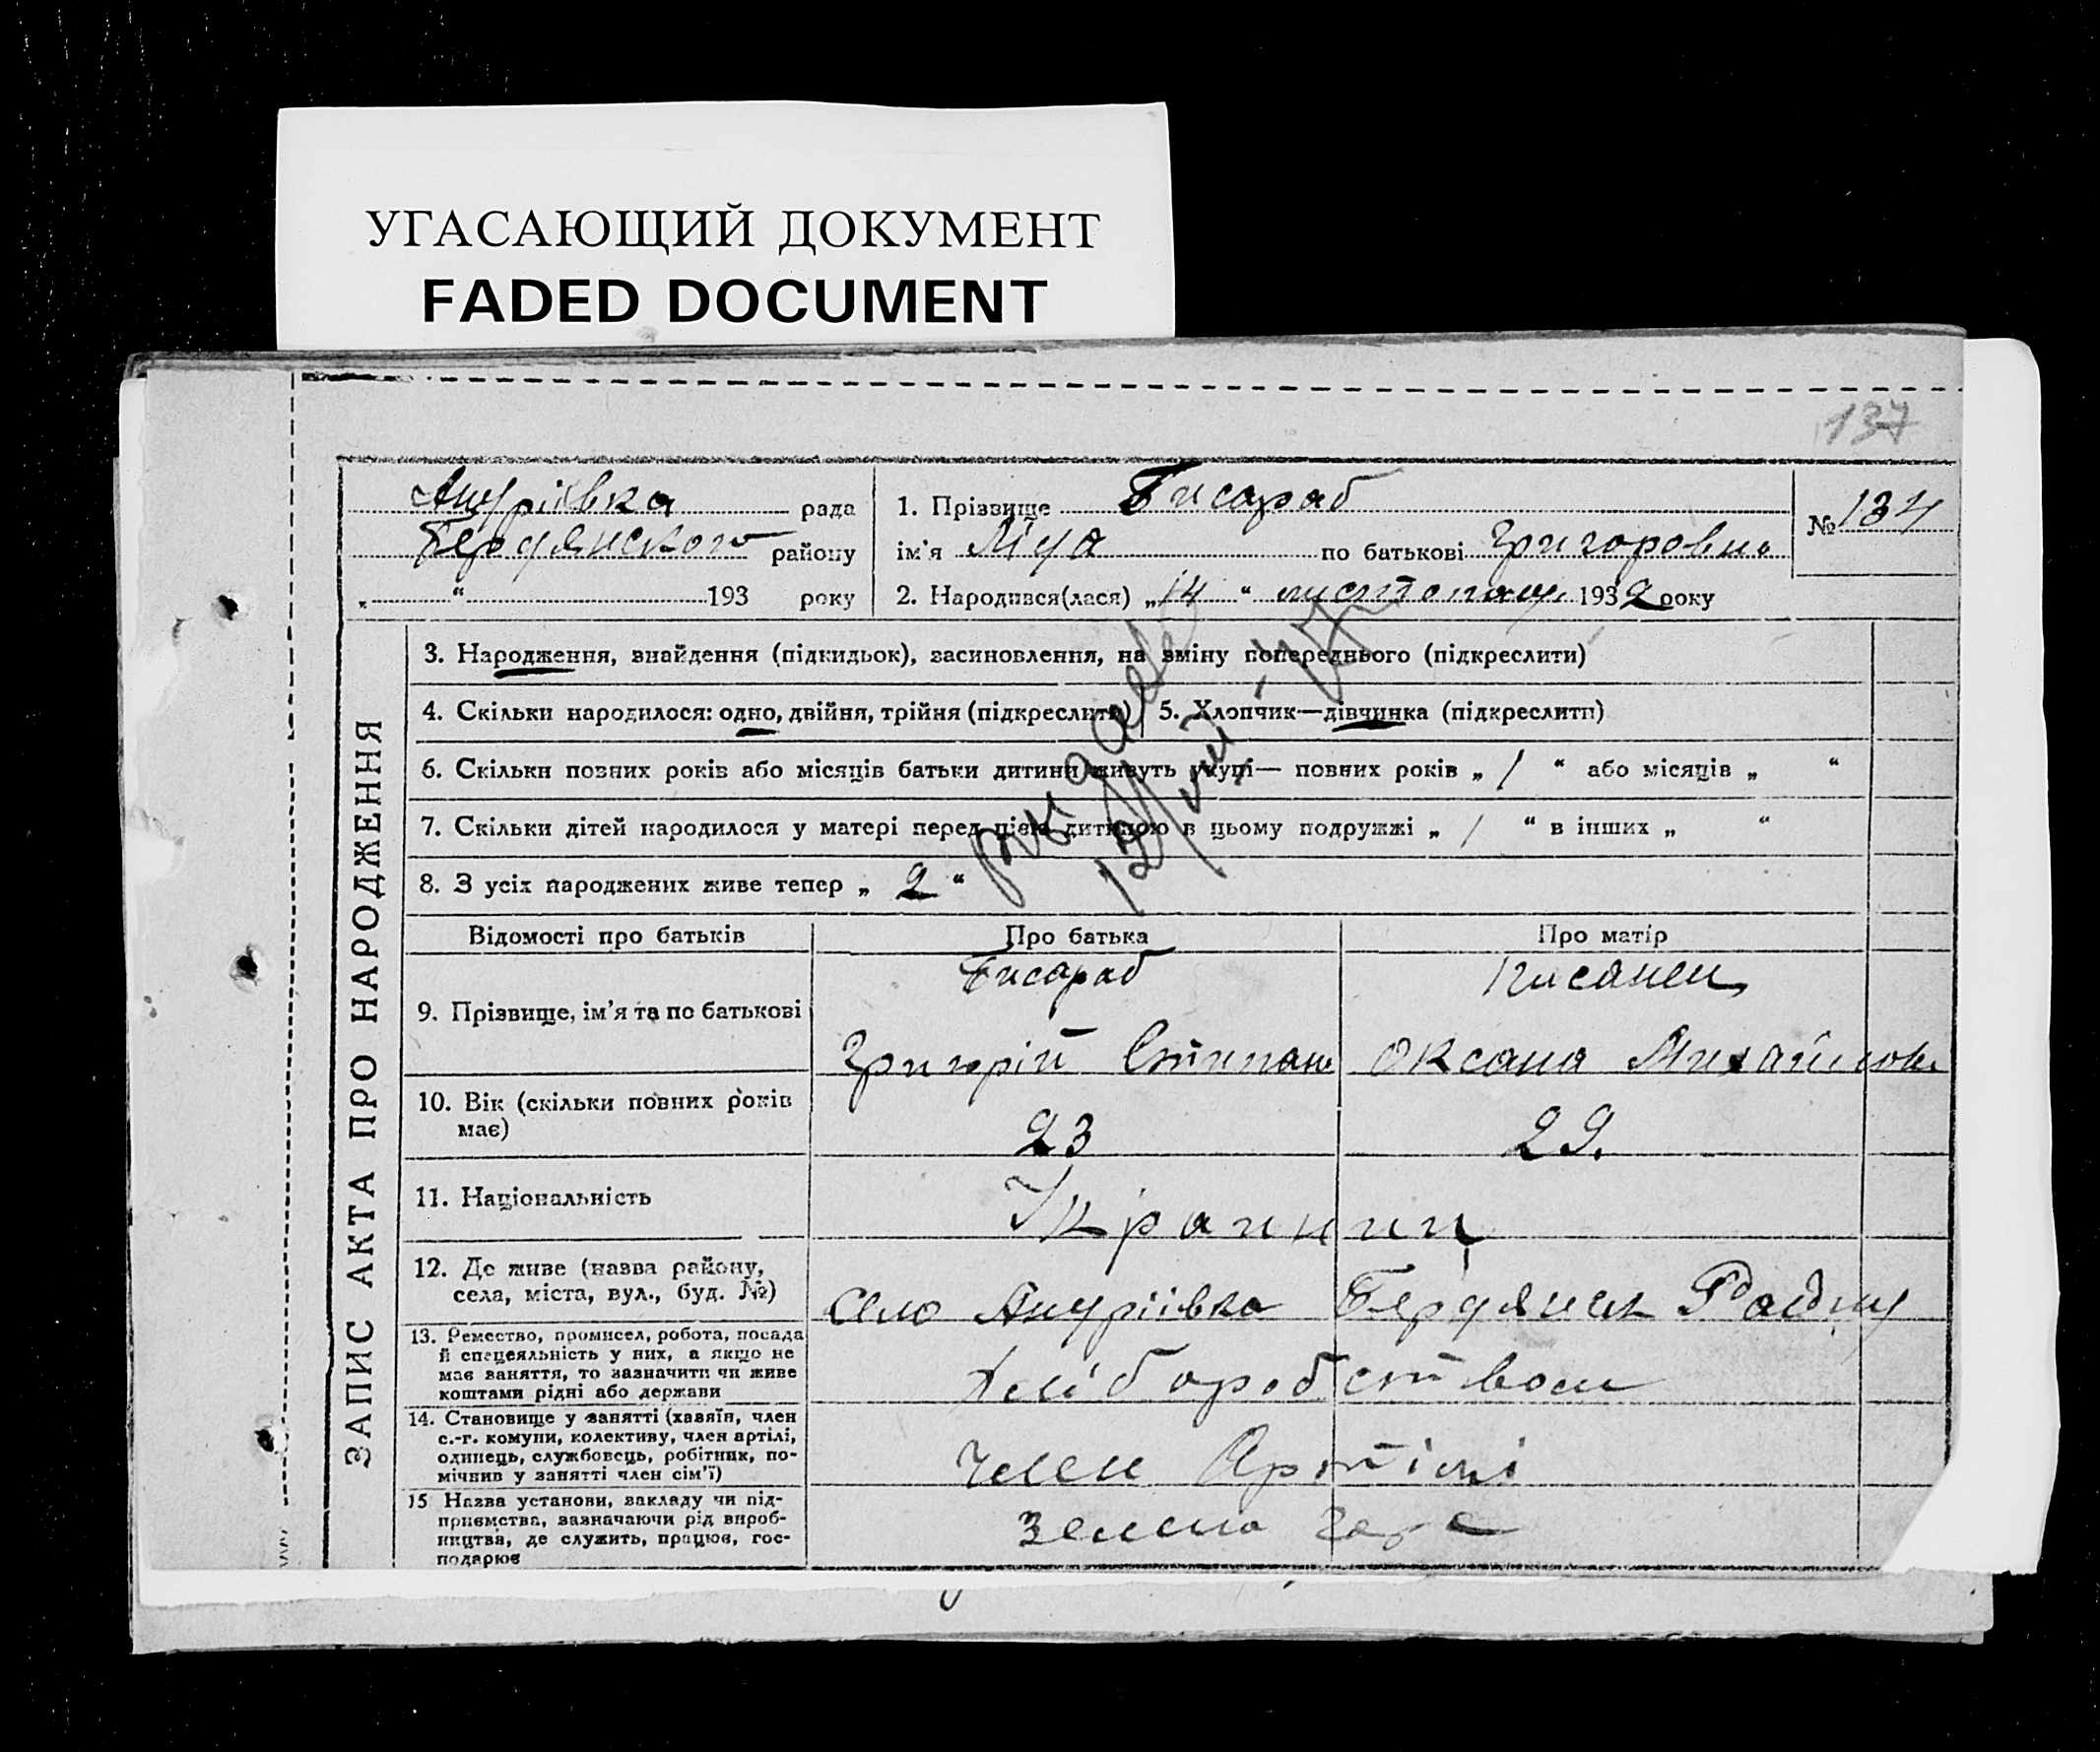 УГАСАЮЩИЙ ДОКУМЕНТ
FADED DOCUMENT
137
Андріївка рада
Бердянского району
„ “ 193 року
1. Прізвище Бисараб
ім'я по батькові Григоровна
2. Народився(лася) „14“ листопаду 1932 року
№ 134
ЗАПИС АКТА ПРО НАРОДЖЕННЯ
3. Народження, знайдення (підкидьок), засиновлення, на зміну попереднього (підкреслити)
4. Скільки народилося: одно, двійня, трійня (підкреслити) 5. Хлопчик—дівчинка (підкреслити)
6. Скільки повних років або місяців батьки дитини живуть укупі— повних років „ 1 “ або місяців „ “
7. Скільки дітей народилося у матері перед цією дитиною в цьому подружжі „ 1 “ в інших „ “
8. З усіх народжених живе тепер „ 2 “
Відомості про батьків Про батька Про матір
9. Прізвище, ім'я та по батькові
Бисараб Писанец
Григорій Степан Оксана Михайловн
10. Вік (скільки повних років
має)
23 29.
11. Національність
Українци
12. Де живе (назва району,
села, міста, вул., буд. №)
Село Андріївка Бердянск Району
13. Ремество, промисел, робота, посада
й спецеяльність у них, а якщо не
має заняття, то зазначити чи живе
коштами рідні або держави
Хліборобством
14. Становище у занятті (хазяїн, член
с.-г. комуни, колективу, член артілі,
одинець, службовець, робітник, по-
мічний у занятті член сім'ї)
член Артілі
15 Назва установи, закладу чи під-
приємства, зазначаючи рід вироб-
ництва, де служить, працює, гос-
подарює
Зелена